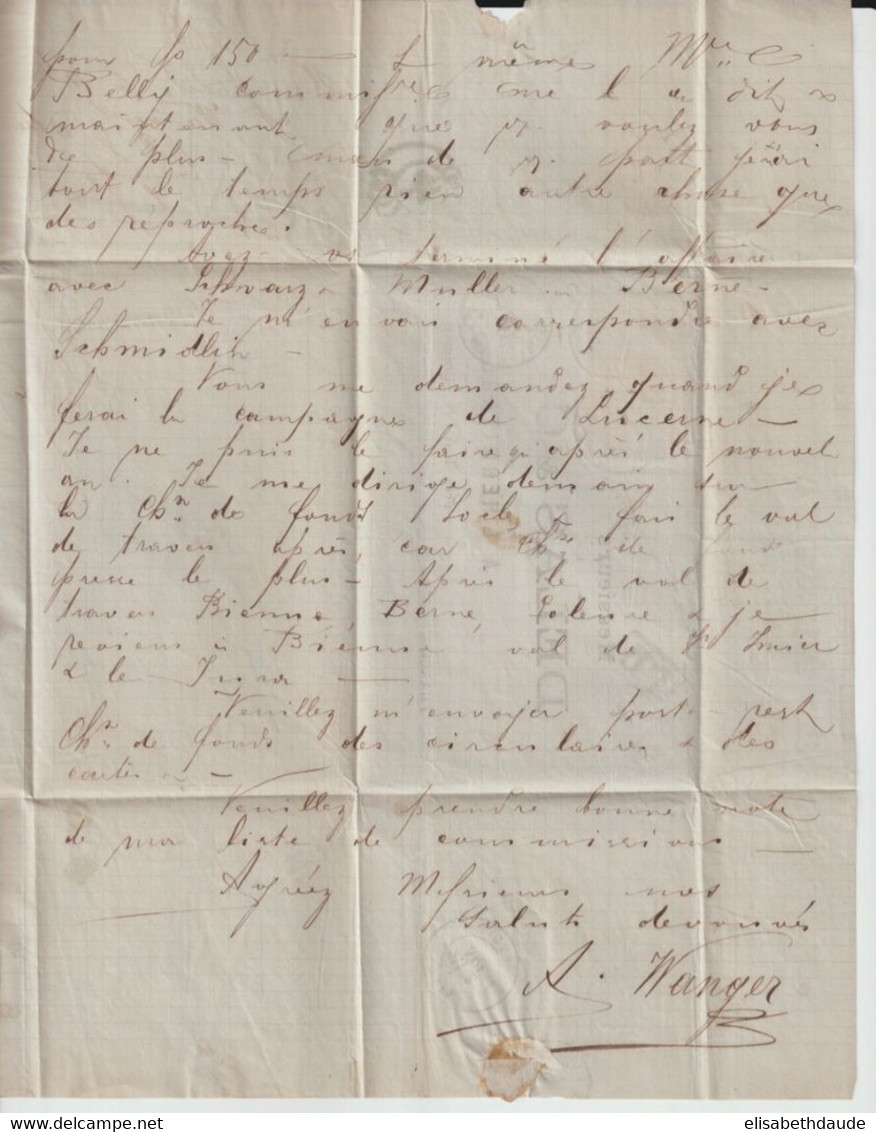 pour fs 150 — même Mr
Belly me l a dit &
maintenant que v. voulez vous
de plus — de v. part j'ai
tout le temps rien autre chose que
des réproches.
Avez vs terminé l'affaire
avec Schwarz & Muller à Berne —
Je m'en vais correspondre avec
Schmidlin —
Vous me demandez quand je
ferai la campagne de Lucerne —
Je ne puis le faire qu'après le nouvel
an. Je me dirige demain sur
la Chx de fonds Locle, fais le val
de travers après, car Chx de fonds
presse le plus — Après le val de
travers Bienne, Berne, Soleure & je
reviens à Bienne val de St Imier
& le Jura —
Veuillez m'envoyer poste rest
Chx de fonds des circulaires & des
cartes —
Veuillez prendre bonne note
de ma liste de commissions —
Agréez Messieurs mes
Saluts dévoués
A. Wanger
elisabethdaude